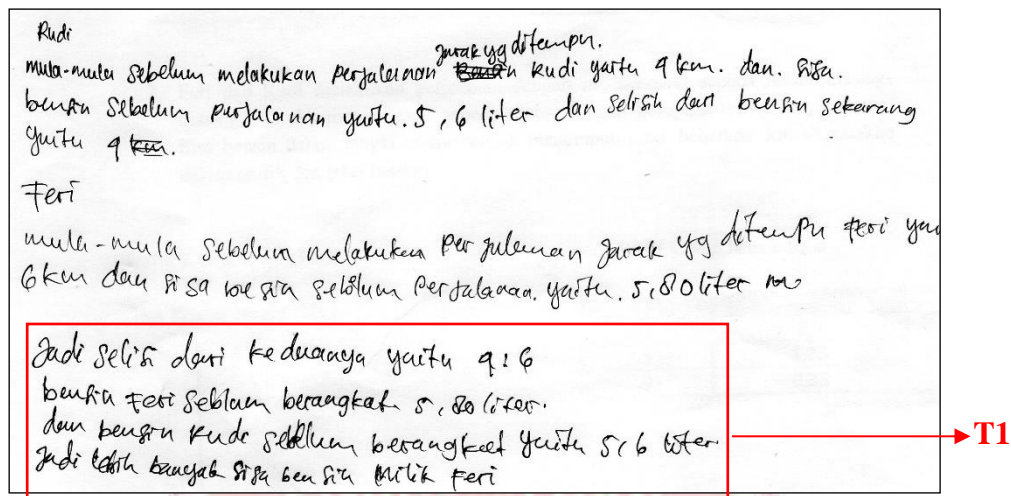 Rudi
jarak yg ditempu.
mula-mula sebelum melakukan perjalanan Rudi yaitu 9 km. dan. sisa.
bensin sebelum perjalanan yaitu. 5,6 liter dan selisih dari bensin sekarang
yaitu 9 km.
Feri
mula-mula sebelum melakukan perjalanan jarak yg ditempu Feri yai
6 km dan sisa bensin sebelum perjalanan. yaitu. 5,80 liter
Jadi selisi dari keduanya yaitu 9:6
bensin Feri seblum berangkat 5,80 liter.
dan bensin Rudi sebelum berangkat yaitu 5,6 liter
Jadi lebih banyak sisa bensin milik Feri
T1